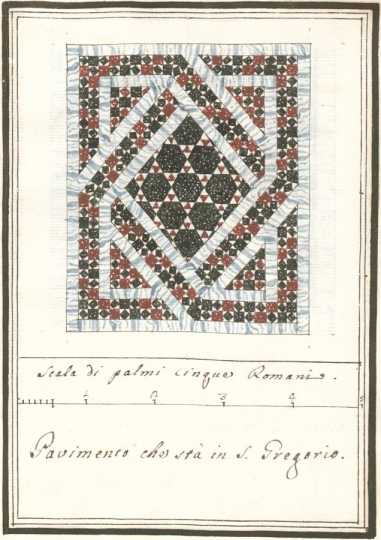 Scala di palmi cinque Romani.
1 2 3 4 5
Pavimento che stà in S. Gregorio.